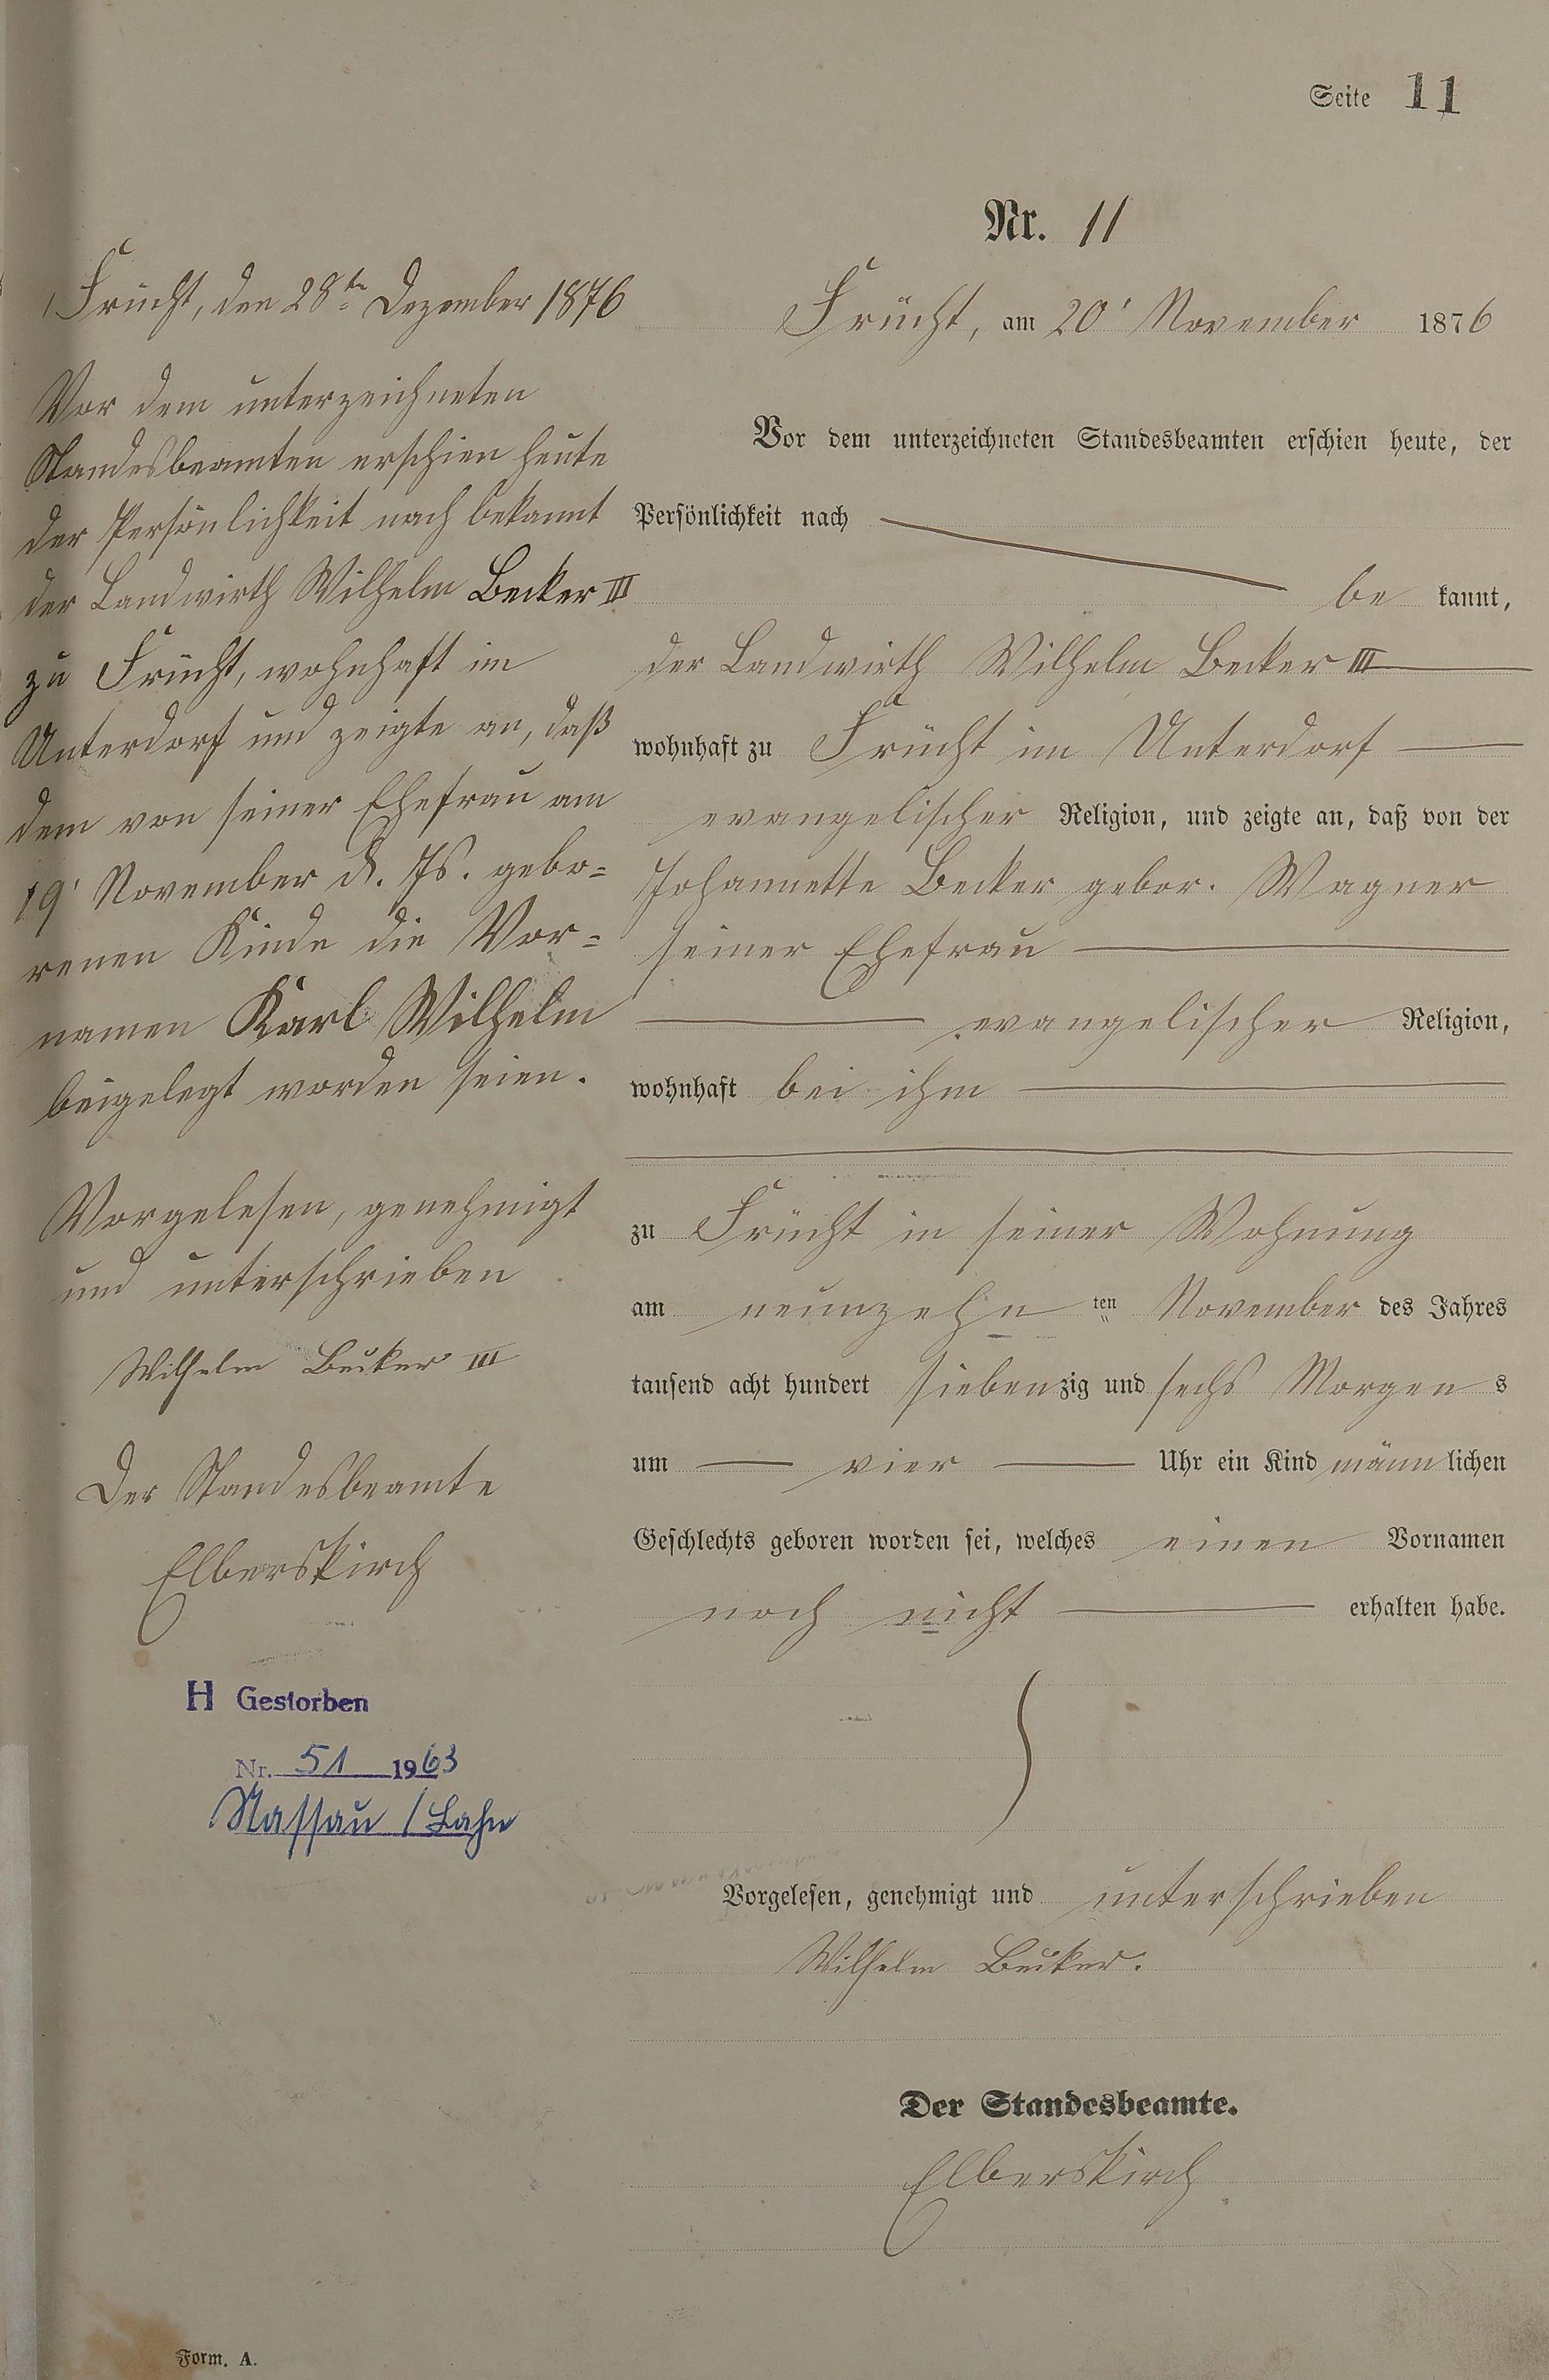 Seite 11
Nr. 11
Frücht, am 20' November 1876
Vor dem unterzeichneten Standesbeamten erschien heute, der
Persönlichkeit nach
be kannt,
der Landwirth Wilhelm Becker III
wohnhaft zu Frücht im Unterdorf
evangelischer Religion, und zeigte an, daß von der
Johannette Becker gebor. Wagner
seiner Ehefrau
evangelischer Religion,
wohnhaft bei ihm
zu Frücht in seiner Wohnung
am neunzehn ten November des Jahres
tausend acht hundert siebenzig und sechs Morgens
um vier Uhr ein Kind männlichen
Geschlechts geboren worden sei, welches einen Vornamen
noch nicht erhalten habe.
Vorgelesen, genehmigt und unterschrieben
Wilhelm Becker.
Der Standesbeamte.
Elberskirch
Frücht, den 28ten Dezember 1876
Vor dem unterzeichneten
Standesbeamten erschien heute
der Persönlichkeit nach bekannt
der Landwirth Wilhelm Becker III
zu Frücht, wohnhaft im
Unterdorf und zeigte an, daß
dem von seiner Ehefrau am
19' November d. Js. gebo=
renen Kinde die Vor=
namen Karl Wilhelm
beigelegt worden seien.
Vorgelesen, genehmigt
und unterschrieben
Wilhelm Becker III
Der Standesbeamte
Elberskirch
H Gestorben
Nr. 51 1963
Nassau / Lahn
Form. A.